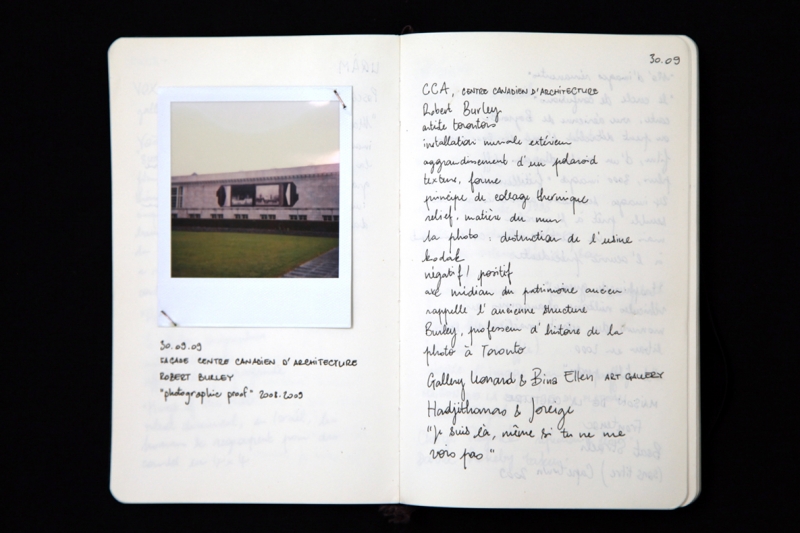 30.09.09
FAÇADE CENTRE CANADIEN D'ARCHITECTURE
ROBERT BURLEY
"photographic proof" 2008.2009
30.09
CCA, CENTRE CANADIEN D'ARCHITECTURE
Robert Burley
artiste torontois
installation murale extérieur
aggrandissement d'un polaroid
texture, forme
principe de collage thermique
relief, matière du mur
la photo : destruction de l'usine
kodak
négatif / positif
axe médian du patrimoine ancien
rappelle l'ancienne structure
Burley, professeur d'histoire de la
photo à Toronto
Gallery Leonard & Bina Ellen ART GALLERY
Hadjithomas & Joreige
"Je suis là, même si tu ne me
vois pas"